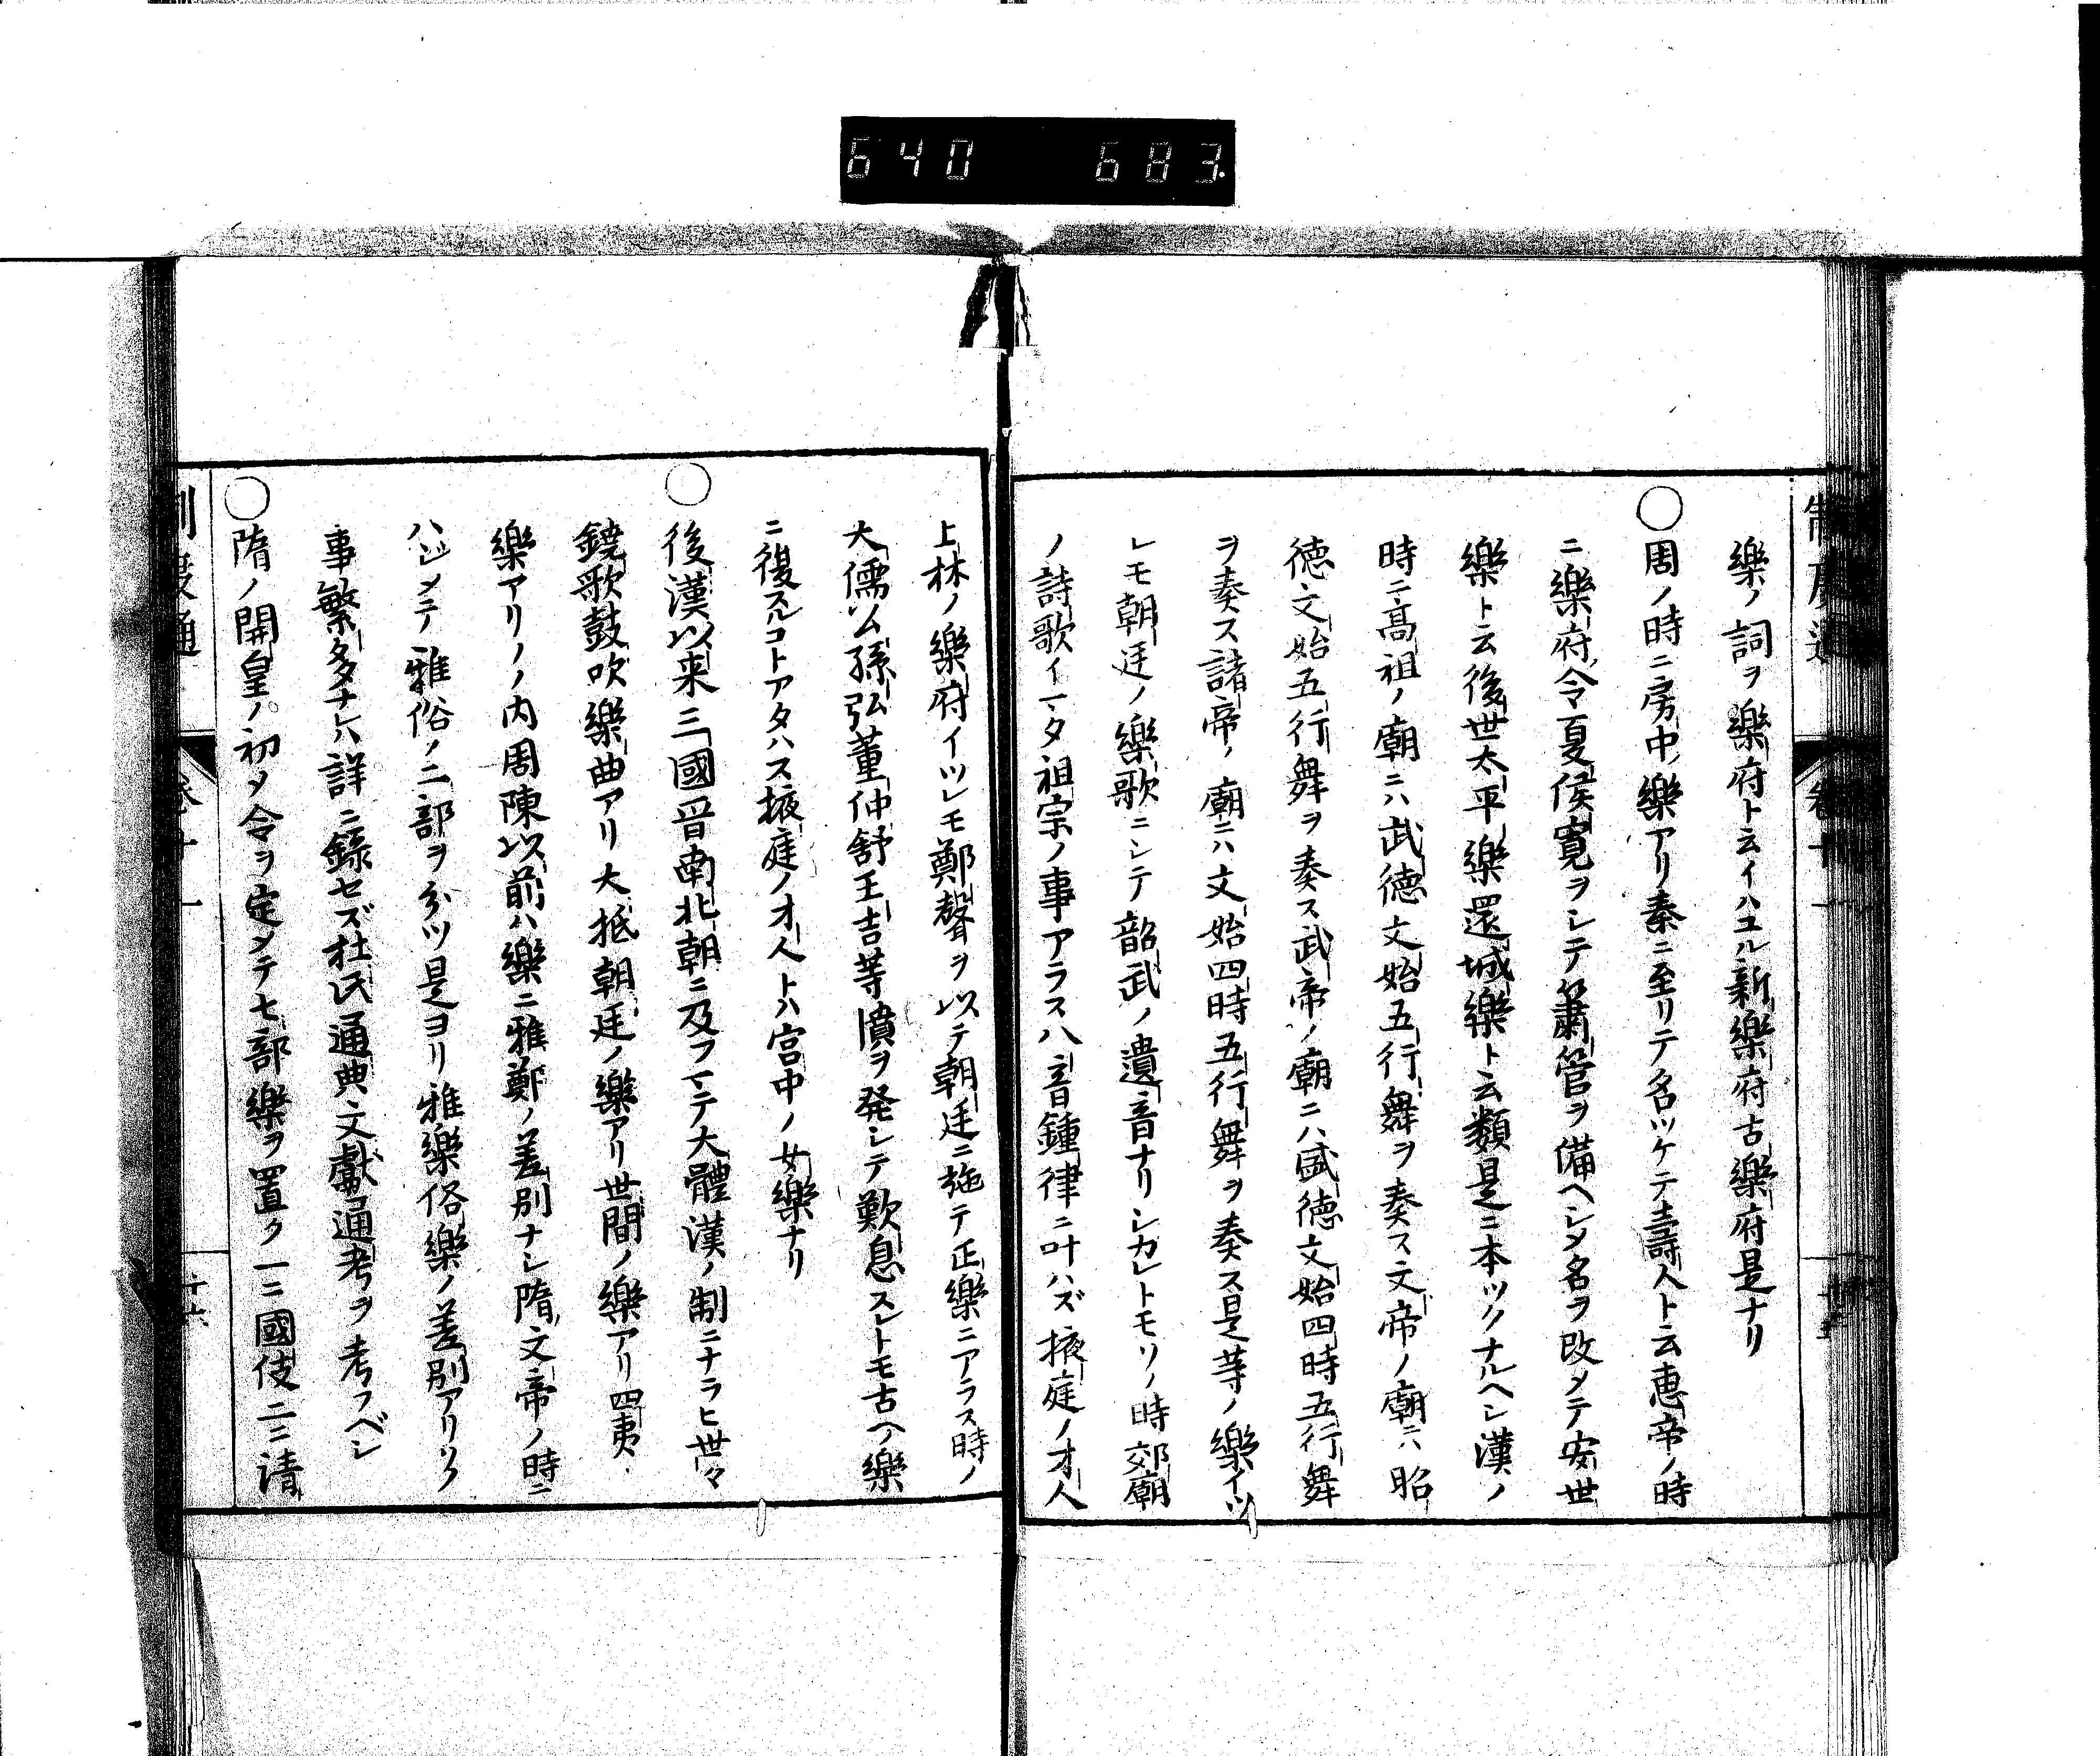 640 683.
制度通
卷十
樂ノ詞ヲ樂府ト云イハユル新樂府古樂府是ナリ
○周ノ時ニ房中ノ樂アリ秦ニ至リテ名ツケテ壽人ト云恵帝ノ時
ニ樂府令夏侯寛ヲシテ簫管ヲ備ヘシメ名ヲ改メテ安世
樂ト云後世太平樂還城樂ト云類是ニ本ツクナルヘシ漢ノ
時ニ髙祖ノ廟ニハ武徳文始五行舞ヲ奏ス文帝ノ廟ニハ昭
徳文始五行舞ヲ奏ス武帝ノ廟ニハ盛徳文始四時五行舞
ヲ奏ス諸帝ノ廟ニハ文始四時五行舞ヲ奏ス是等ノ樂イツ
レモ朝廷ノ樂歌ニシテ韶武ノ遺音ナリシカレトモソノ時郊廟
ノ詩歌イマタ祖宗ノ事アラス八音鍾律ニ叶ハズ掖庭ノ才人
上林ノ樂府イツレモ鄭聲ヲ以テ朝廷ニ施テ正樂ニアラス時ノ
大儒公孫弘董仲舒王吉等憤ヲ発シテ歎息スレトモ古ヘノ樂
ニ復スルコトアタハス掖庭ノ才人トハ宮中ノ女樂ナリ
○後漢以来三國晋南北朝ニ及フマテ大體漢ノ制ニナラヒ世々
鐃歌鼓吹樂曲アリ大抵朝廷ノ樂アリ世間ノ樂アリ四夷ノ
樂アリソノ内周陳以前ハ樂ニ雅鄭ノ差別ナシ隋ノ文帝ノ時ニ
ハジメテ雅俗ノ二部ヲ分ツ是ヨリ雅樂俗樂ノ差別アリソノ
事繁多ナレハ詳ニ錄セズ杜氏通典文獻通考ヲ考フベシ
○隋ノ開皇ノ初メ令ヲ定メテ七部樂ヲ置ク一ニ國伎二ニ清
制度通
卷十一
十六